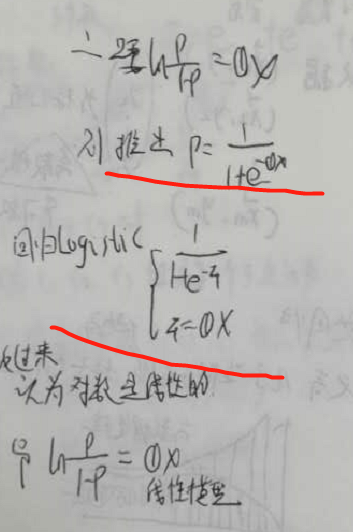 ∴ ln p/1-p = Θx
则推出 p = 1/1+e^-Θx
回归Logistic { 1/1+e^-z
z=Θx
过来
认为对数是线性的
即 ln p/1-p = Θx
线性模型